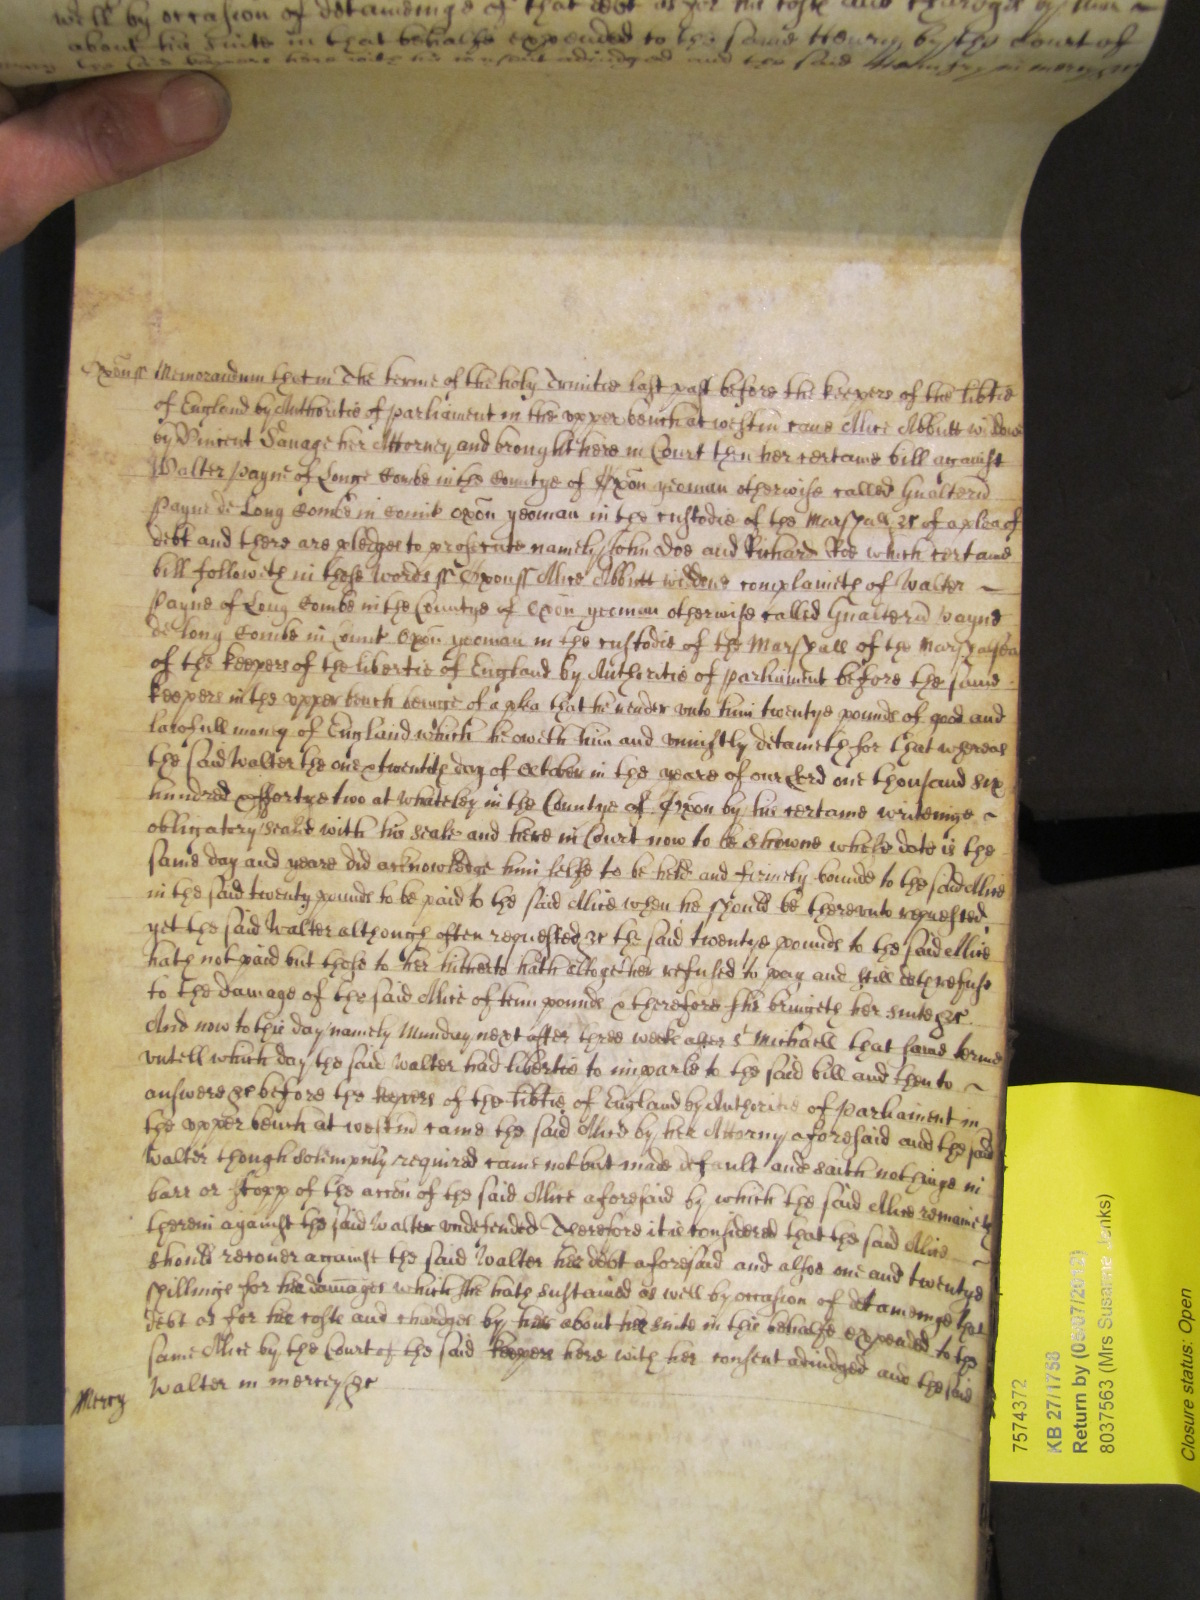 well by occasion of detaineinge of that debt as for his costs and chardges by him
about his suite in that behalfe expended to the same Henry by the Court of
the said keepers here with his consent adiudged and the said in mercy
Oxon ss Memorandum that in the terme of the holy Trinitie last past before the keepers of the libtie
of England by Authoritie of parliament in the vpper bench at westm came Alice Abbutt widdowe
by Vincent Danage her Attorney and brought here in Court then her certaine bill against
Walter Payne of Longe Combe in the Countye of Oxon yeoman otherwise called Gualterū
Payne de Long Combe in Comit Oxon yeoman in the custodie of the Marshall &c of a plea of
debt and there are pledges to prosecute namely John Doe and Richard Roe which certaine
bill followeth in these words ss Oxon ss Alice Abbutt widdowe complaineth of Walter
Payne of Long Combe in the Countye of Oxon yeoman otherwise called Gualterū Payne
de Long Combe in Comit Oxon yeoman in the custodie of the Marshall of the Marshalsea
of the keepers of the libertie of England by Authoritie of parliament before the same
keepers in the vpper bench beinge of a plea that he render vnto him twentye pounds of good and
lawfull money of England which he oweth him and vniustly detaineth for that whereas
the said Walter the one & twentith day of October in the yeare of our Lord one thousand six
hundred & ffortye two at Whateley in the Countye of Oxon by his certaine writeinge
obligatory sealed with his seale and here in Court now to be showne whose date is the
same day and yeare did acknowledge him selfe to be held and firmely bounde to the said Alice
in the said twenty pounds to be paid to the said Alice when he should be therevnto requested
yet the said Walter although often requested &c the said twentye pounds to the said Alice
hath not paid but those to her hitherto hath altogether refused to pay and still doth refuse
to the damage of the said Alice of tenn pounds & therefore she bringeth her suite &c
And now to this day namely Munday next after three weeke after St Michaell that same terme
vntell which day the said Walter had libertie to imparle to the said bill and then to
answere &c before the keepers of the libtie of England by Authoritie of parliament in
the vpper bench at westm came the said Alice by her Attorny aforesaid and the said
Walter though solempnly required came not but made default and saith nothinge in
barr or stopp of the accon of the said Alice aforesaid by which the said Alice remaineth
therein against the said Walter vndefended Therefore it is considered that the said Alice
should recouer against the said Walter her debt aforesaid and alsoe one and twentye
shillinge for her damages which she hath sustained as well by occasion of detaineinge that
debt as for her costs and chardges by her about her suite in this behalfe expended to the
same Alice by the Court of the said keepers here with her consent adiudged and the said
Mercy Walter in mercy &c
7574372
KB 27/1758
Return by (06/07/2012)
8037563 (Mrs Susanne Jenks)
Closure status: Open